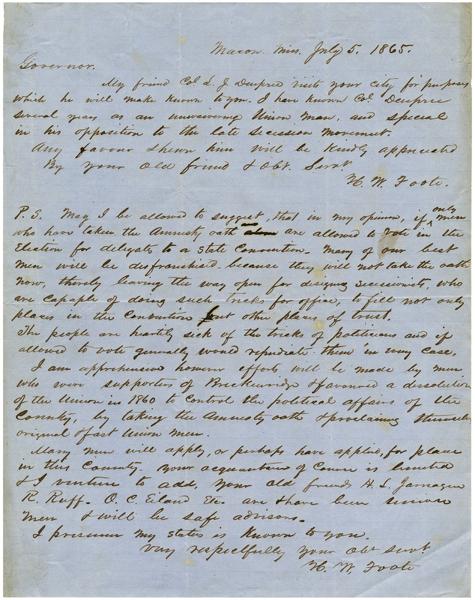 Macon Miss. July 5. 1865.
Governor.
My friend Col L. J. Deupree visits your city for purposes
which he will make known to you. I have known Col. Deupree
several years as an unwavering Union man, and special
in his opposition to the late secession movement.
Any favour shewn him will be kindly appreciated
By your Old friend & Obt. Servt.
H. W. Foote.
P. S. May I be allowed to suggest, that in my opinion, if only men
who have taken the Amnesty oath are allowed to vote in the
Election for delegates to a State Convention. Many of our best
men will be disfranchised because they will not take the oath
now, thereby leaving the way open for designing secessionists, who
are capable of doing such tricks for office, to fill not only
places in the Convention but other places of trust.
The people are heartily sick of the tricks of politicians and if
allowed to vote generally would repudiate them in every case.
I am apprehensive however efforts will be made by men
who were supporters of Breckenridge & favoured a dissolution
of the Union in 1860 to control the political affairs of the
County, by taking the Amnesty oath & proclaiming themselves
original & fast Union men.
Many men will apply, or perhaps have applied, for place
in this County. Your acquaintance of Course is limited
& I venture to add, your old friends H. L. Jarnagin
R. Ruff. O. C. Eiland are & have been
men & will be safe advisors.
I presume my status is known to you.
Very respectfully your Obt servt
H. W. Foote